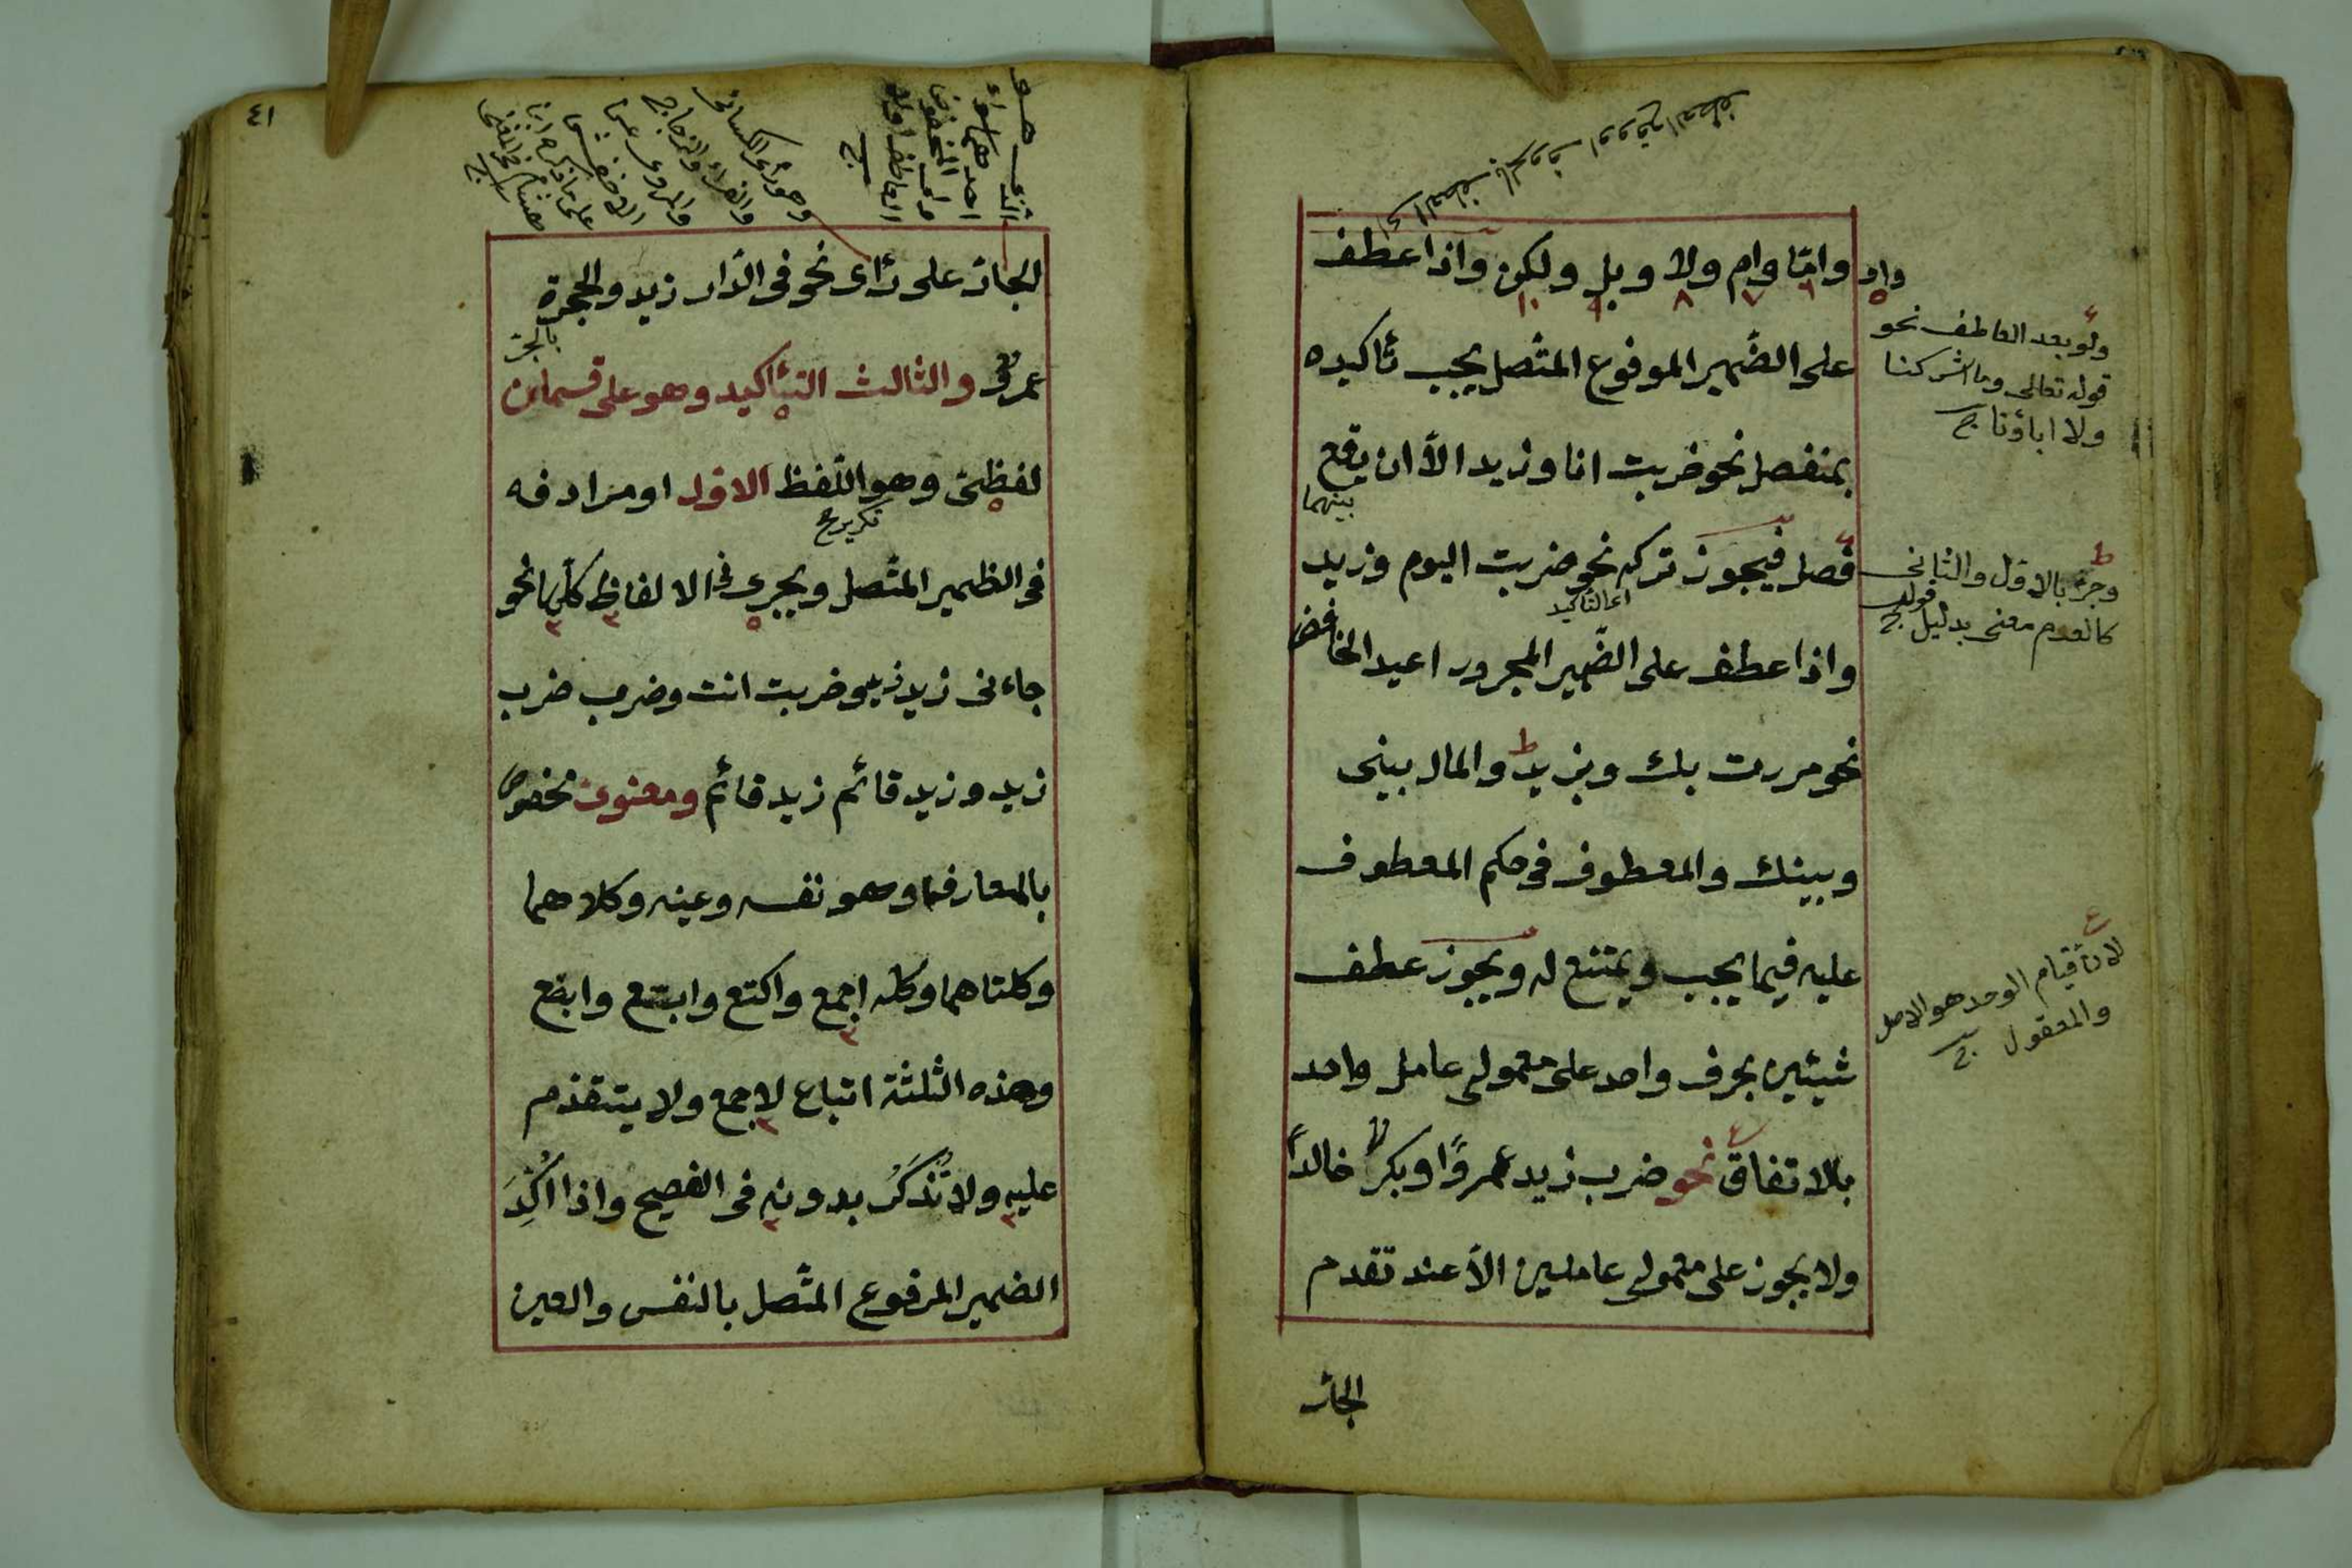 واو واما وام ولا وبل ولكن واذا عطف
على الضمير المرفوع المتّصل يجب تأكيده
بمنفصل نحو ضربت انا وزيد الاّ ان يقع
بينهما
فصل فيجوز تركه نحو ضربت اليوم وزيد
اى التأكيد
واذا عطف على الضّمير المجرور اعيد الخافض
نحو مررت بك وبزيد والمال بينى
وبينك والمعطوف فى حكم المعطوف
عليه فيما يجب ويمتنع له ويجوز عطف
شيئين بحرف واحد على معمولى عامل واحد
بالاتفاق نحو ضرب زيد عمروًا وبكر خالدًا
ولا يجوز على معمولى عاملين الاّ عند تقدم
الجار
ولو بعد العاطف نحو
قوله تعالى وما اشركنا
ولا اباؤنا
وجرّ بالاول والثانى
كالعدم معنى بدليل قولهم
لان قيام الوحد هو الاصل
والمعقول
٤١
الجارّ على رأى نحو فى الدّار زيد والحجرة
عمرو والثالث التأكيد وهو على قسمين
بالجرّ
لفظىّ وهو اللّفظ الاوّل او مرادفه
تكرير
فى الظمير المتّصل ويجرى فى الالفاظ كلّها نحو
جاءنى زيد زيد وضربت انت وضرب ضرب
زيد وزيد قائم زيد قائم ومعنوى مخصوص
بالمعارف وهو نفسه وعينه وكلاهما
وكلتاهما وكله اجمع واكتع وابتع وابصع
وهذه الثلثة اتباع لاجمع ولا يتقدم
عليه ولا تُذكَرُ بدونه فى الفصيح واذا اُكِّدَ
الضمير المرفوع المتّصل بالنفس والعين